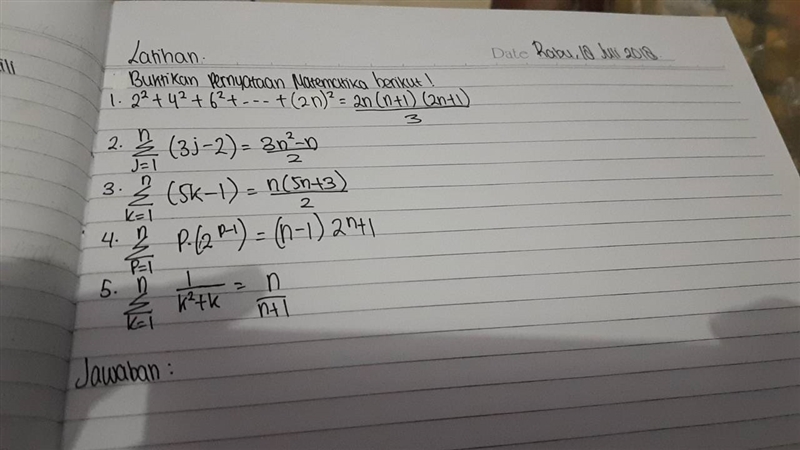 Latihan.
Date Rabu, 18 Juli 2018
Buktikan Pernyataan Matematika berikut!
1. 2² + 4² + 6² + --- + (2n)² = 2n(n+1)(2n+1)/3
2. n Σ j=1 (3j-2) = 3n²-n/2
3. n Σ k=1 (5k-1) = n(5n+3)/2
4. n Σ P=1 P.(2^(P-1)) = (n-1) 2ⁿ+1
5. n Σ k=1 1/k²+k = n/n+1
Jawaban :